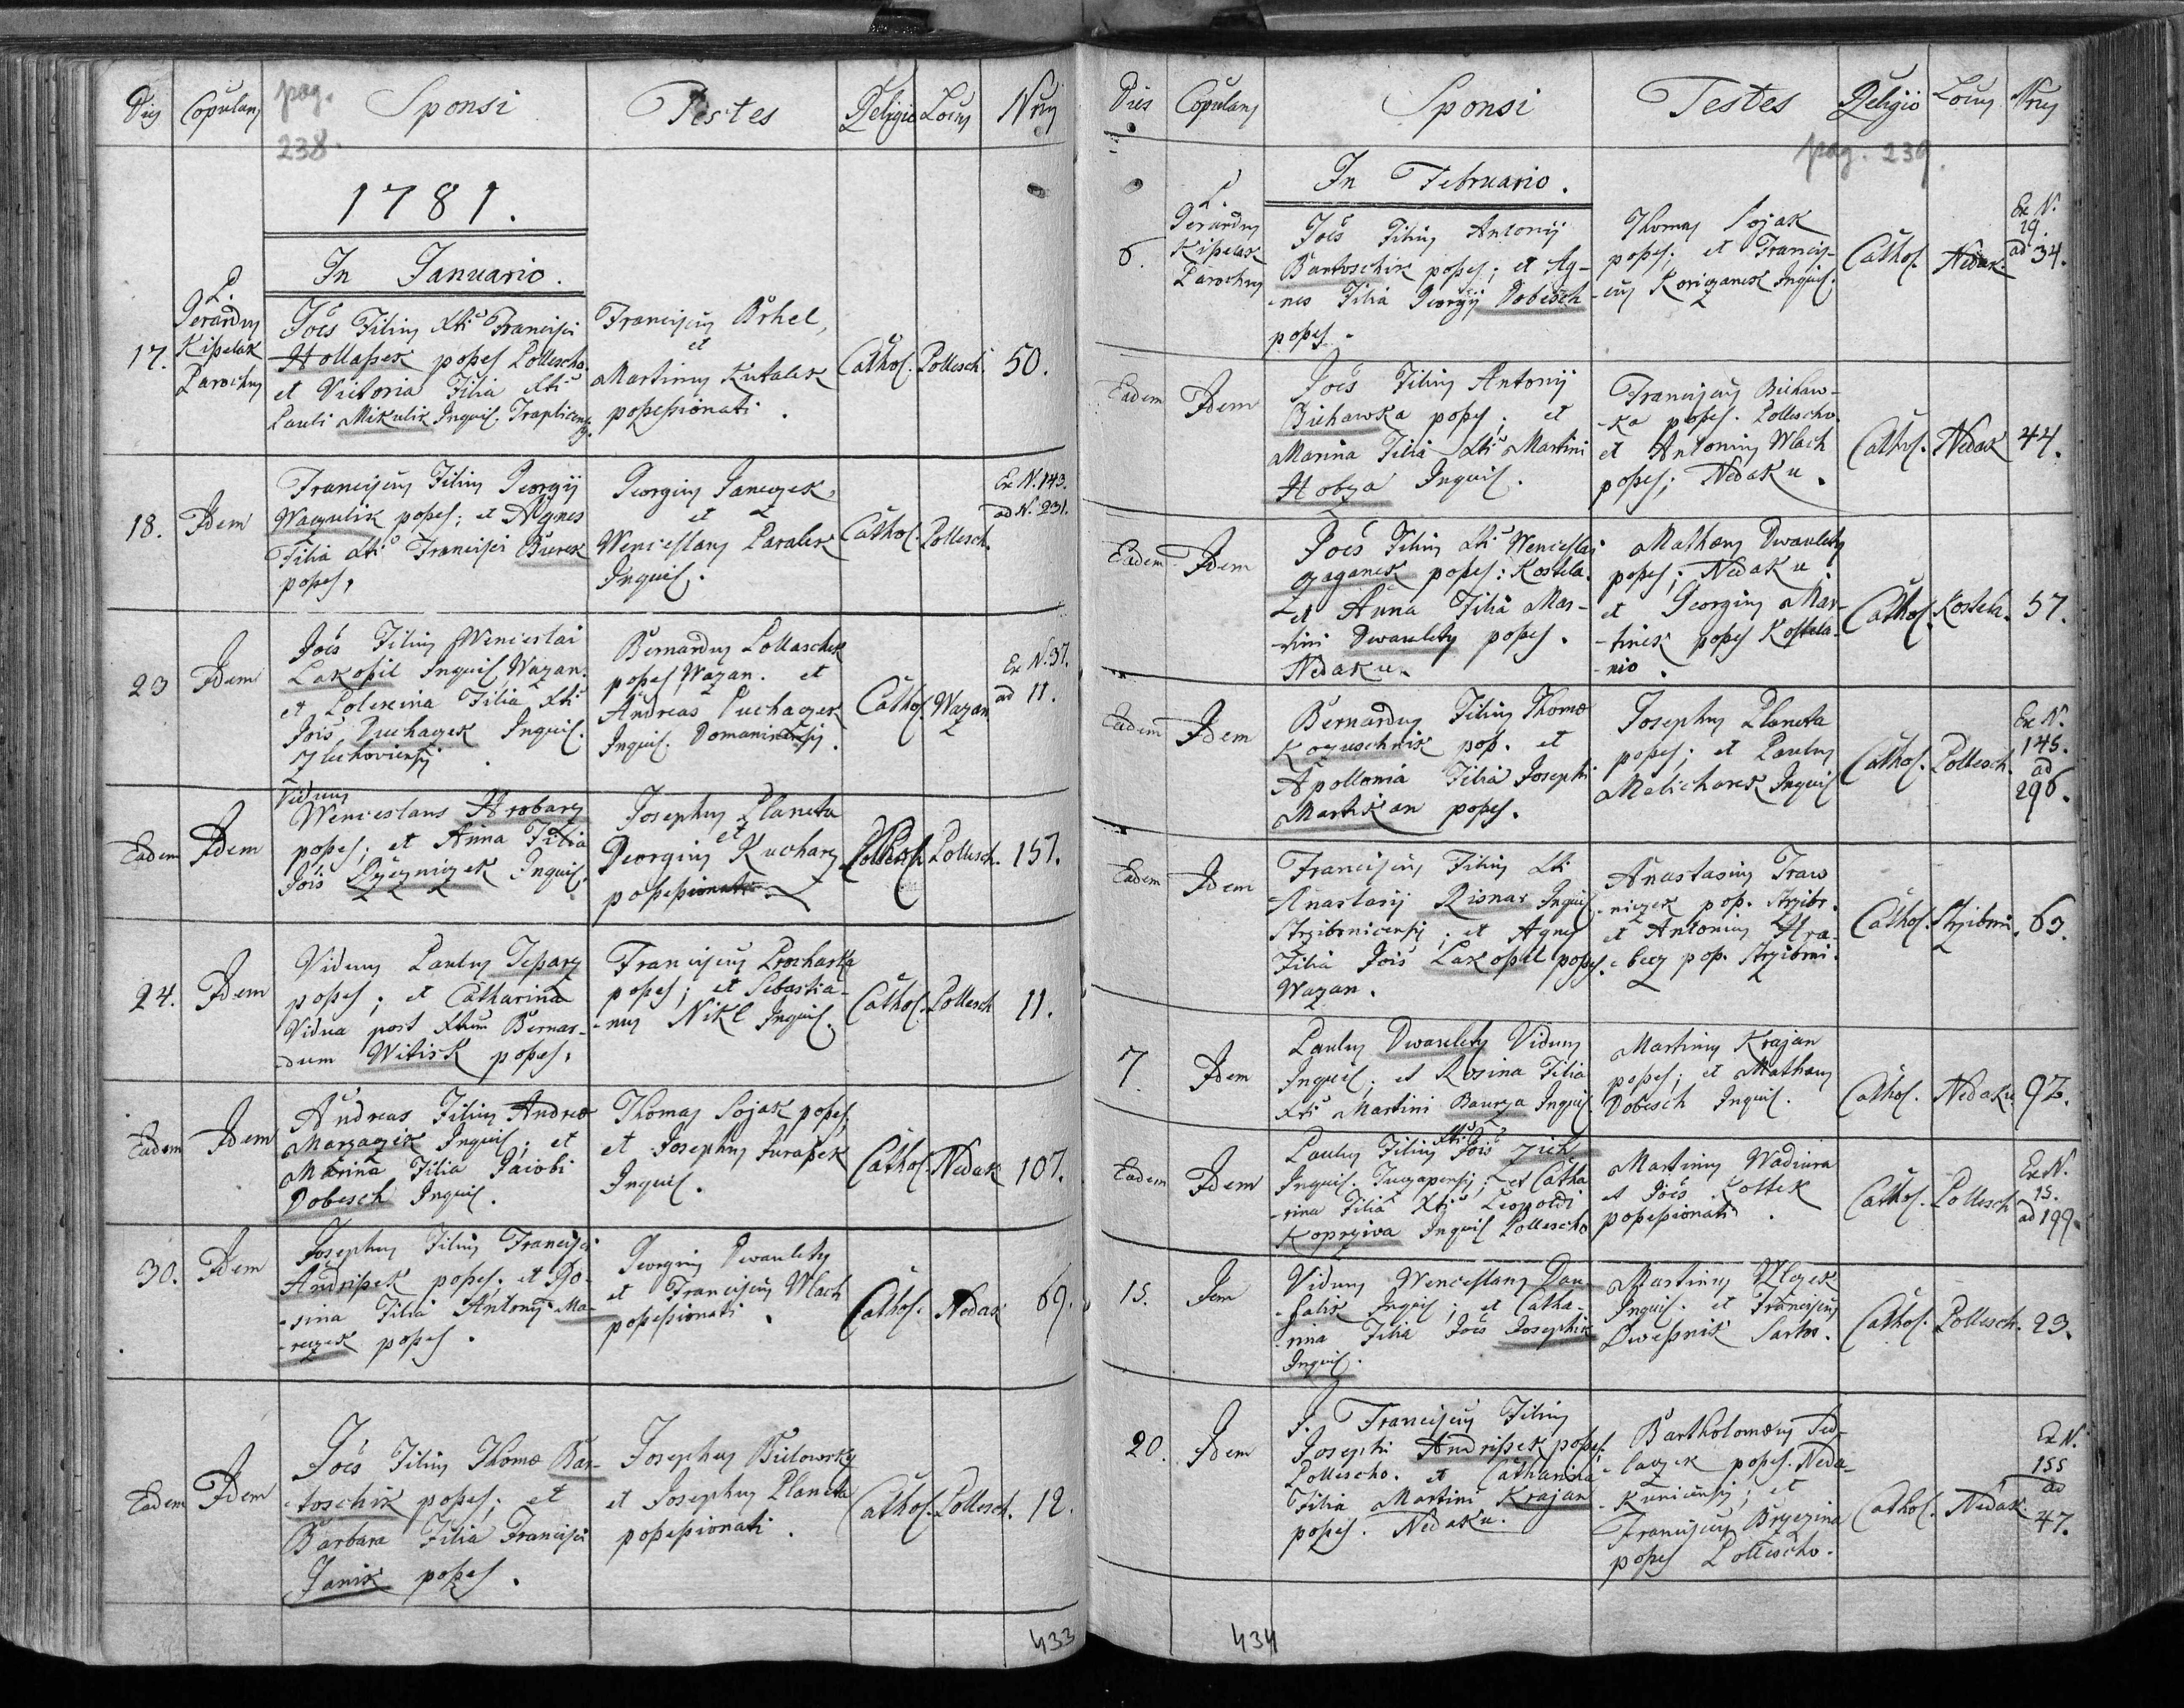 Dies Copulans pag. Sponsi Testes Religio Locus Nrus
238.
1781.
In Januario.
17.
P.
Gerardus
Kißelak
Parochus
Joes Filius ✝ti Francisci
Hollaßek poßes Pollescho.
et Victoria Filia ✝ti
Pauli Mikulik Inquil. Traplicensis
Franciscus Brhel,
et
Martinus Kutalek
poßeßionati.
Cathol. Pollesch. 50.
18. Idem
Franciscus Filius Georgij
Waczulik poßes; et Agnes
Filia ✝ti Francisci Burek
poßes.
Georgius Janczek,
et
Wenceslaus Paralek
Inquil.
Cathol. Pollesch.
Ex N. 143.
ad N. 231.
23 Idem
Joes Filius Wenceslai
Lakosil Inquil Wazan.
et Polexina Filia ✝ti
Jois Puchazek Inquil.
Zlechoviensis
Bernardus Pollaschek
poßes Wazan. et
Andreas Puchaczek
Inquil. Domaninensis.
Cathol. Wazan
Ex N. 37.
ad 11.
Eadem Idem
Viduus
Wenceslaus Hrobarz
poßes; et Anna Filia
Jois Rzezniczek Inquil.
Josephus Planeta
et
Georgius Kucharz
poßeßionati
Cathol. Pollesch. 157.
24. Idem
Viduus Paulus Teparz
poßes; et Catharina
Vidua post ✝tum Bernar-
-dum Witisk poßes.
Franciscus Prochaska
poßes; et Sebastia-
-nus Nikl Inquil.
Cathol. Pollesch 11.
Eadem Idem
Andreas Filius Andreæ
Marzazik Inquil; et
Marina Filia Jacobi
Dobesch Inquil.
Thomas Sojak poßes,
et Josephus Juraßek
Inquil.
Cathol. Nedak 107.
30. Idem
Josephus Filius Francisci
Andrißek poßes; et Ro-
-sina Filia Antonij Ma-
-reczek poßes.
Georgius Dwauletý
et Franciscus Wlach
poßeßionati.
Cathol. Nedak 69.
Eadem Idem
Joes Filius Thomæ Bar-
-toschik poßes; et
Barbara Filia Francisci
Janik poßes.
Josephus Bielowský
et Josephus Planeta
poßeßionati.
Cathol. Pollesch. 12.
433
Dies Copulans Sponsi Testes Religio Locus Nrus
pag. 239.
In Februario.
6.
P.
Gerardus
Kißelak
Parochus
Joes Filius Antonij
Bartoschik poßes; et Ag-
-nes Filia Georgij Dobesch
poßes.
Thomas Sojak
poßes; et Francis-
-cus Koriczanek Inquil.
Cathol. Nedak.
Ex N.
29.
ad 34.
Eadem Idem
Joes Filius Antonij
Biehawka poßes; et
Marina Filia ✝ti Martini
Hobza Inquil.
Franciscus Biehaw-
-ka poßes. Pollescho.
et Antonius Wlach
poßes; Nedaku.
Cathol. Nedak 44.
Eadem Idem
Joes Filius ✝ti Wenceslai
Zaganek poßes: Kostela.
et Anna Filia Mar-
-tini Dwauletý poßes.
Nedaku.
Mathæus Dwauletý
poßes; Nedaku
et Georgius Mar-
-tinek poßes Kostela-
-nio.
Cathol. Kostela. 57.
Eadem Idem
Bernardus Filius Thomæ
Kozuschnik poß. et
Apollonia Filia Josephi
Martikan poßes.
Josephus Planeta
poßes; et Paulus
Melicharek Inquil
Cathol. Pollesch.
Ex N.
145.
ad
296.
Eadem Idem
Franciscus Filius ✝ti
Anastasij Risnar Inquil
Strzibrnicensis; et Agnes
Filia Jois Lakosil poßes.
Wazan.
Anastasius Traw
-niczek poß. Strzibr.
et Antonius Hra-
-becz poß. Strzibrni.
Cathol. Strzibrni. 63.
7. Idem
Paulus Dwauletý Viduus
Inquil; et Rosina Filia
✝ti Martini Baurza Inquil
Martinus Krajan
poßes; et Mathæus
Dobesch Inquil.
Cathol. Nedaku. 92.
Eadem Idem
Paulus Filius ✝ti Jois Zich
Inquil. Tuczapensis; et Catha
-rina Filia ✝ti Leopoldi
Koprziwa Inquil Pollescho
Martinus Wadiura
et Joes Kostek
poßeßionati.
Cathol. Pollesch
Ex N.
15.
ad 199.
15. Idem
Viduus Wenceslaus Dau-
-falik Inquil; et Catha-
-rina Filia Jois Josephik
Inquil.
Martinus Wlczek
Inquil. et Franciscus
Owesnik Sartor.
Cathol. Pollesch. 23.
20. Idem
J. Franciscus Filius
Josephi Andrißek poßes.
Pollescho. et Catharina
Filia Martini Krajan
poßes. Nedaku.
Bartholomæus Sed-
-laczek poßes. Neda-
-kunicensis; et
Franciscus Brzezina
poßes Pollescho.
Cathol. Nedak.
Ex N.
155
ad
47.
434